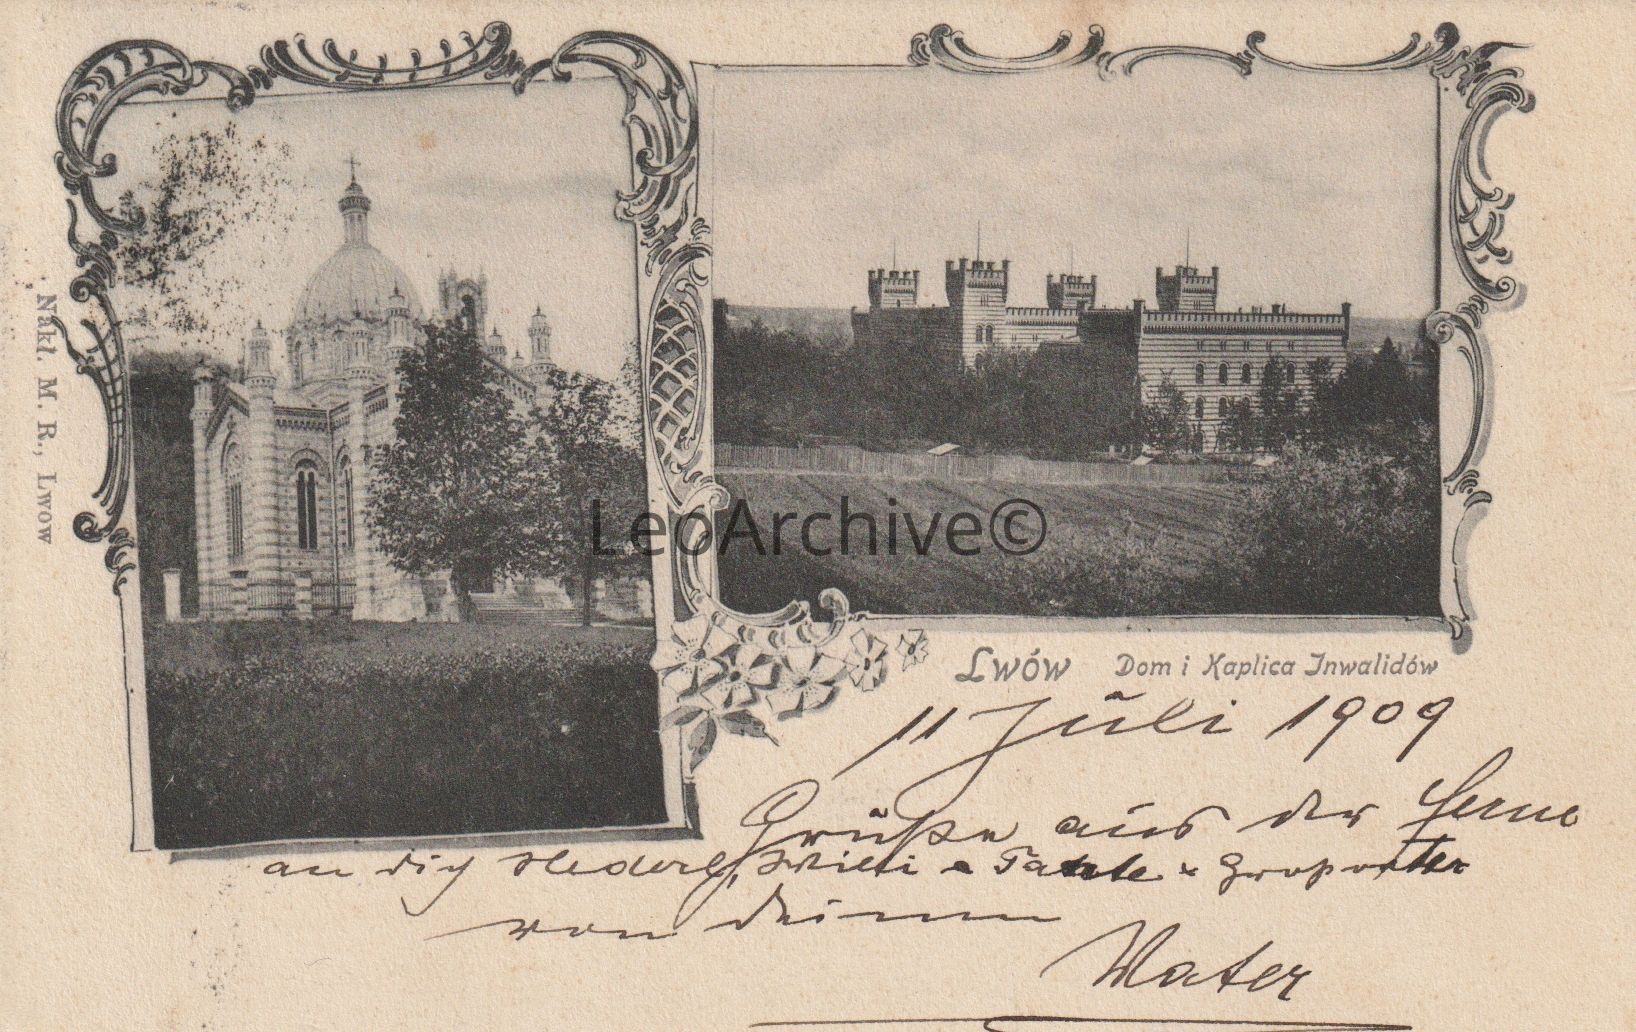 Nakł. M. R., Lwow
LeoArchive©
Lwów Dom i Kaplica Inwalidów
11 Juli 1909
Grüße aus der Ferne
an dich Tante
von deinem
Vater